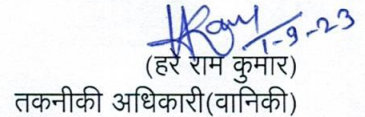 1-9-23
(हरे राम कुमार)
तकनीकी अधिकारी(वानिकी)